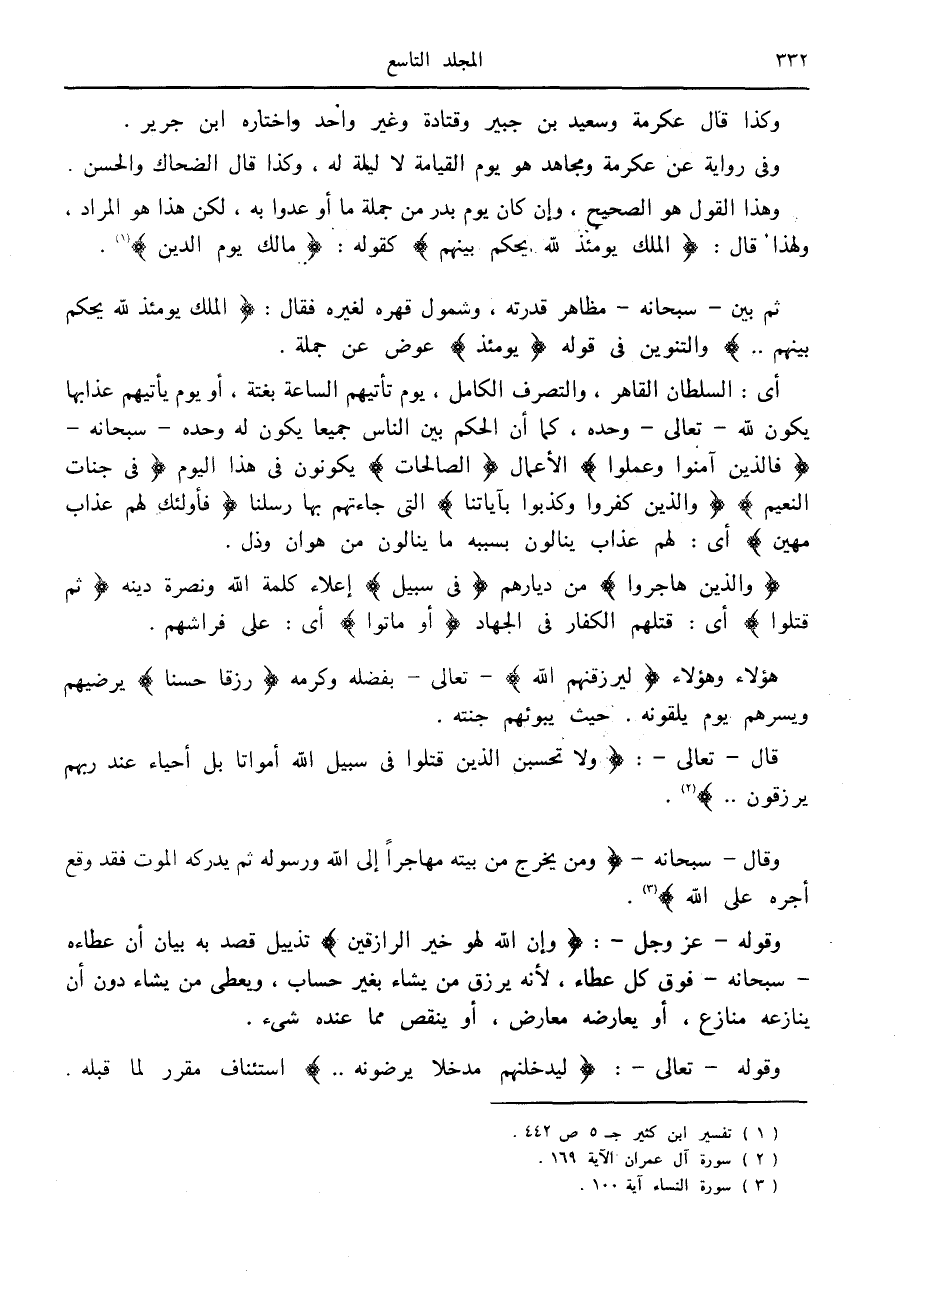 ٣٣٢ المجلد التاسع
وكذا قال عكرمة وسعيد بن جبير وقتادة وغير واحد واختاره ابن جرير .
وفى رواية عن عكرمة ومجاهد هو يوم القيامة لا ليلة له ، وكذا قال الضحاك والحسن .
وهذا القول هو الصحيح ، وإن كان يوم بدر من جملة ما أوعدوا به ، لكن هذا هو المراد ،
ولهذا قال : ﴿ الملك يومئذ لله يحكم بينهم ﴾ كقوله : ﴿ مالك يوم الدين ﴾(١) .
ثم بين – سبحانه – مظاهر قدرته ، وشمول قهره لغيره فقال : ﴿ الملك يومئذ لله يحكم
بينهم .. ﴾ والتنوين فى قوله ﴿ يومئذ ﴾ عوض عن جملة .
أى : السلطان القاهر ، والتصرف الكامل ، يوم تأتيهم الساعة بغتة ، أو يوم يأتيهم عذابها
يكون لله – تعالى – وحده ، كما أن الحكم بين الناس جميعا يكون له وحده – سبحانه –
﴿ فالذين آمنوا وعملوا ﴾ الأعمال ﴿ الصالحات ﴾ يكونون فى هذا اليوم ﴿ فى جنات
النعيم ﴾ ﴿ والذين كفروا وكذبوا بآياتنا ﴾ التى جاءتهم بها رسلنا ﴿ فأولئك لهم عذاب
مهين ﴾ أى : لهم عذاب ينالون بسببه ما ينالون من هوان وذل .
﴿ والذين هاجروا ﴾ من ديارهم ﴿ فى سبيل ﴾ إعلاء كلمة الله ونصرة دينه ﴿ ثم
قتلوا ﴾ أى : قتلهم الكفار فى الجهاد ﴿ أو ماتوا ﴾ أى : على فراشهم .
هؤلاء وهؤلاء ﴿ ليرزقنهم الله ﴾ – تعالى – بفضله وكرمه ﴿ رزقا حسنا ﴾ يرضيهم
ويسرهم يوم يلقونه . حيث يبوئهم جنته .
قال – تعالى – : ﴿ ولا تحسبن الذين قتلوا فى سبيل الله أمواتا بل أحياء عند ربهم
يرزقون .. ﴾(٢) .
وقال – سبحانه – ﴿ ومن يخرج من بيته مهاجراً إلى الله ورسوله ثم يدركه الموت فقد وقع
أجره على الله ﴾(٣) .
وقوله – عز وجل – : ﴿ وإن الله لهو خير الرازقين ﴾ تذييل قصد به بيان أن عطاءه
– سبحانه – فوق كل عطاء ، لأنه يرزق من يشاء بغير حساب ، ويعطى من يشاء دون أن
ينازعه منازع ، أو يعارضه معارض ، أو ينقص مما عنده شىء .
وقوله – تعالى – : ﴿ ليدخلنهم مدخلا يرضونه .. ﴾ استئناف مقرر لما قبله .
( ١ ) تفسير ابن كثير جـ ٥ ص ٤٤٢ .
( ٢ ) سورة آل عمران الآية ١٦٩ .
( ٣ ) سورة النساء آية ١٠٠ .